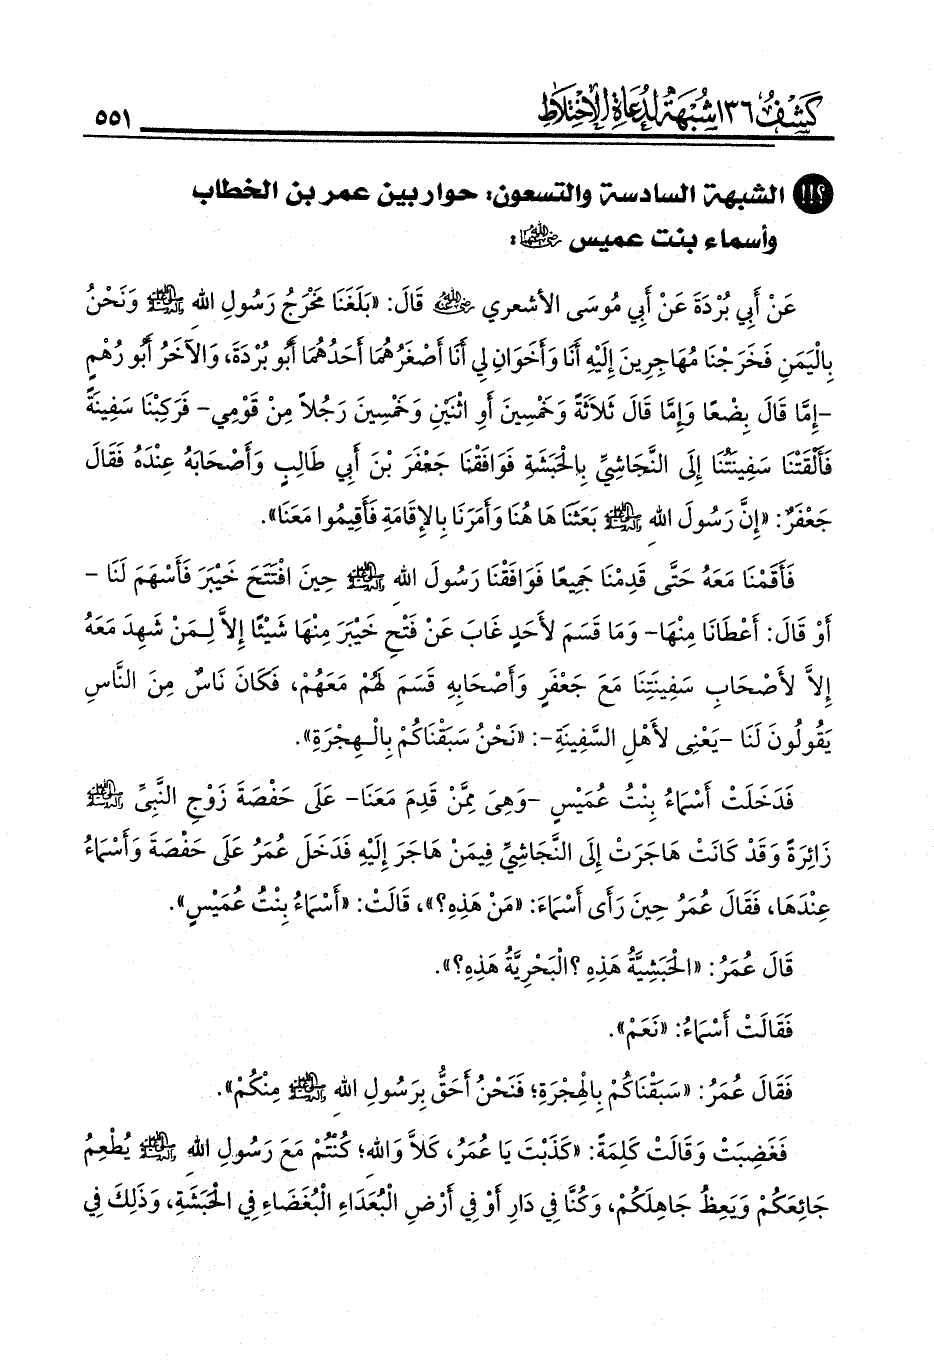 كشف ١٣٦ شبهة لدعاة الاختلاط ٥٥١
الشبهة السادسة والتسعون: حوار بين عمر بن الخطاب
وأسماء بنت عميس رضي الله عنهما:
عَنْ أَبِي بُرْدَةَ عَنْ أَبِي مُوسَى الأشعري رضي الله عنه قَالَ: «بَلَغَنَا مَخْرَجُ رَسُولِ اللهِ ﷺ وَنَحْنُ
بِالْيَمَنِ فَخَرَجْنَا مُهَاجِرِينَ إِلَيْهِ أَنَا وَأَخَوَانِ لِي أَنَا أَصْغَرُهُمَا أَحَدُهُمَا أَبُو بُرْدَةَ، وَالآخَرُ أَبُو رُهْمٍ
-إِمَّا قَالَ بِضْعًا وَإِمَّا قَالَ ثَلاَثَةً وَخَمْسِينَ أَوِ اثْنَيْنِ وَخَمْسِينَ رَجُلاً مِنْ قَوْمِي- فَرَكِبْنَا سَفِينَةً
فَأَلْقَتْنَا سَفِينَتُنَا إِلَى النَّجَاشِيِّ بِالْحَبَشَةِ فَوَافَقْنَا جَعْفَرَ بْنَ أَبِي طَالِبٍ وَأَصْحَابَهُ عِنْدَهُ فَقَالَ
جَعْفَرٌ: «إِنَّ رَسُولَ اللهِ ﷺ بَعَثَنَا هَا هُنَا وَأَمَرَنَا بِالإِقَامَةِ فَأَقِيمُوا مَعَنَا».
فَأَقَمْنَا مَعَهُ حَتَّى قَدِمْنَا جَمِيعًا فَوَافَقْنَا رَسُولَ اللهِ ﷺ حِينَ افْتَتَحَ خَيْبَرَ فَأَسْهَمَ لَنَا -
أَوْ قَالَ: أَعْطَانَا مِنْهَا- وَمَا قَسَمَ لأَحَدٍ غَابَ عَنْ فَتْحِ خَيْبَرَ مِنْهَا شَيْئًا إِلاَّ لِـمَنْ شَهِدَ مَعَهُ
إِلاَّ لأَصْحَابِ سَفِينَتِنَا مَعَ جَعْفَرٍ وَأَصْحَابِهِ قَسَمَ لَهُمْ مَعَهُمْ، فَكَانَ نَاسٌ مِنَ النَّاسِ
يَقُولُونَ لَنَا -يَعْنِى لأَهْلِ السَّفِينَةِ-: «نَحْنُ سَبَقْنَاكُمْ بِالْـهِجْرَةِ».
فَدَخَلَتْ أَسْمَاءُ بِنْتُ عُمَيْسٍ -وَهِىَ مِمَّنْ قَدِمَ مَعَنَا- عَلَى حَفْصَةَ زَوْجِ النَّبِىِّ ﷺ
زَائِرَةً وَقَدْ كَانَتْ هَاجَرَتْ إِلَى النَّجَاشِيِّ فِيمَنْ هَاجَرَ إِلَيْهِ فَدَخَلَ عُمَرُ عَلَى حَفْصَةَ وَأَسْمَاءُ
عِنْدَهَا، فَقَالَ عُمَرُ حِينَ رَأَى أَسْمَاءَ: «مَنْ هَذِهِ؟»، قَالَتْ: «أَسْمَاءُ بِنْتُ عُمَيْسٍ».
قَالَ عُمَرُ: «الْحَبَشِيَّةُ هَذِهِ ؟الْبَحْرِيَّةُ هَذِهِ؟».
فَقَالَتْ أَسْمَاءُ: «نَعَمْ».
فَقَالَ عُمَرُ: «سَبَقْنَاكُمْ بِالْهِجْرَةِ؛ فَنَحْنُ أَحَقُّ بِرَسُولِ اللهِ ﷺ مِنْكُمْ».
فَغَضِبَتْ وَقَالَتْ كَلِمَةً: «كَذَبْتَ يَا عُمَرُ، كَلاَّ وَاللهِ؛ كُنْتُمْ مَعَ رَسُولِ اللهِ ﷺ يُطْعِمُ
جَائِعَكُمْ وَيَعِظُ جَاهِلَكُمْ، وَكُنَّا فِي دَارِ أَوْ فِي أَرْضِ الْبُعَدَاءِ الْبُغَضَاءِ فِي الْحَبَشَةِ، وَذَلِكَ فِي